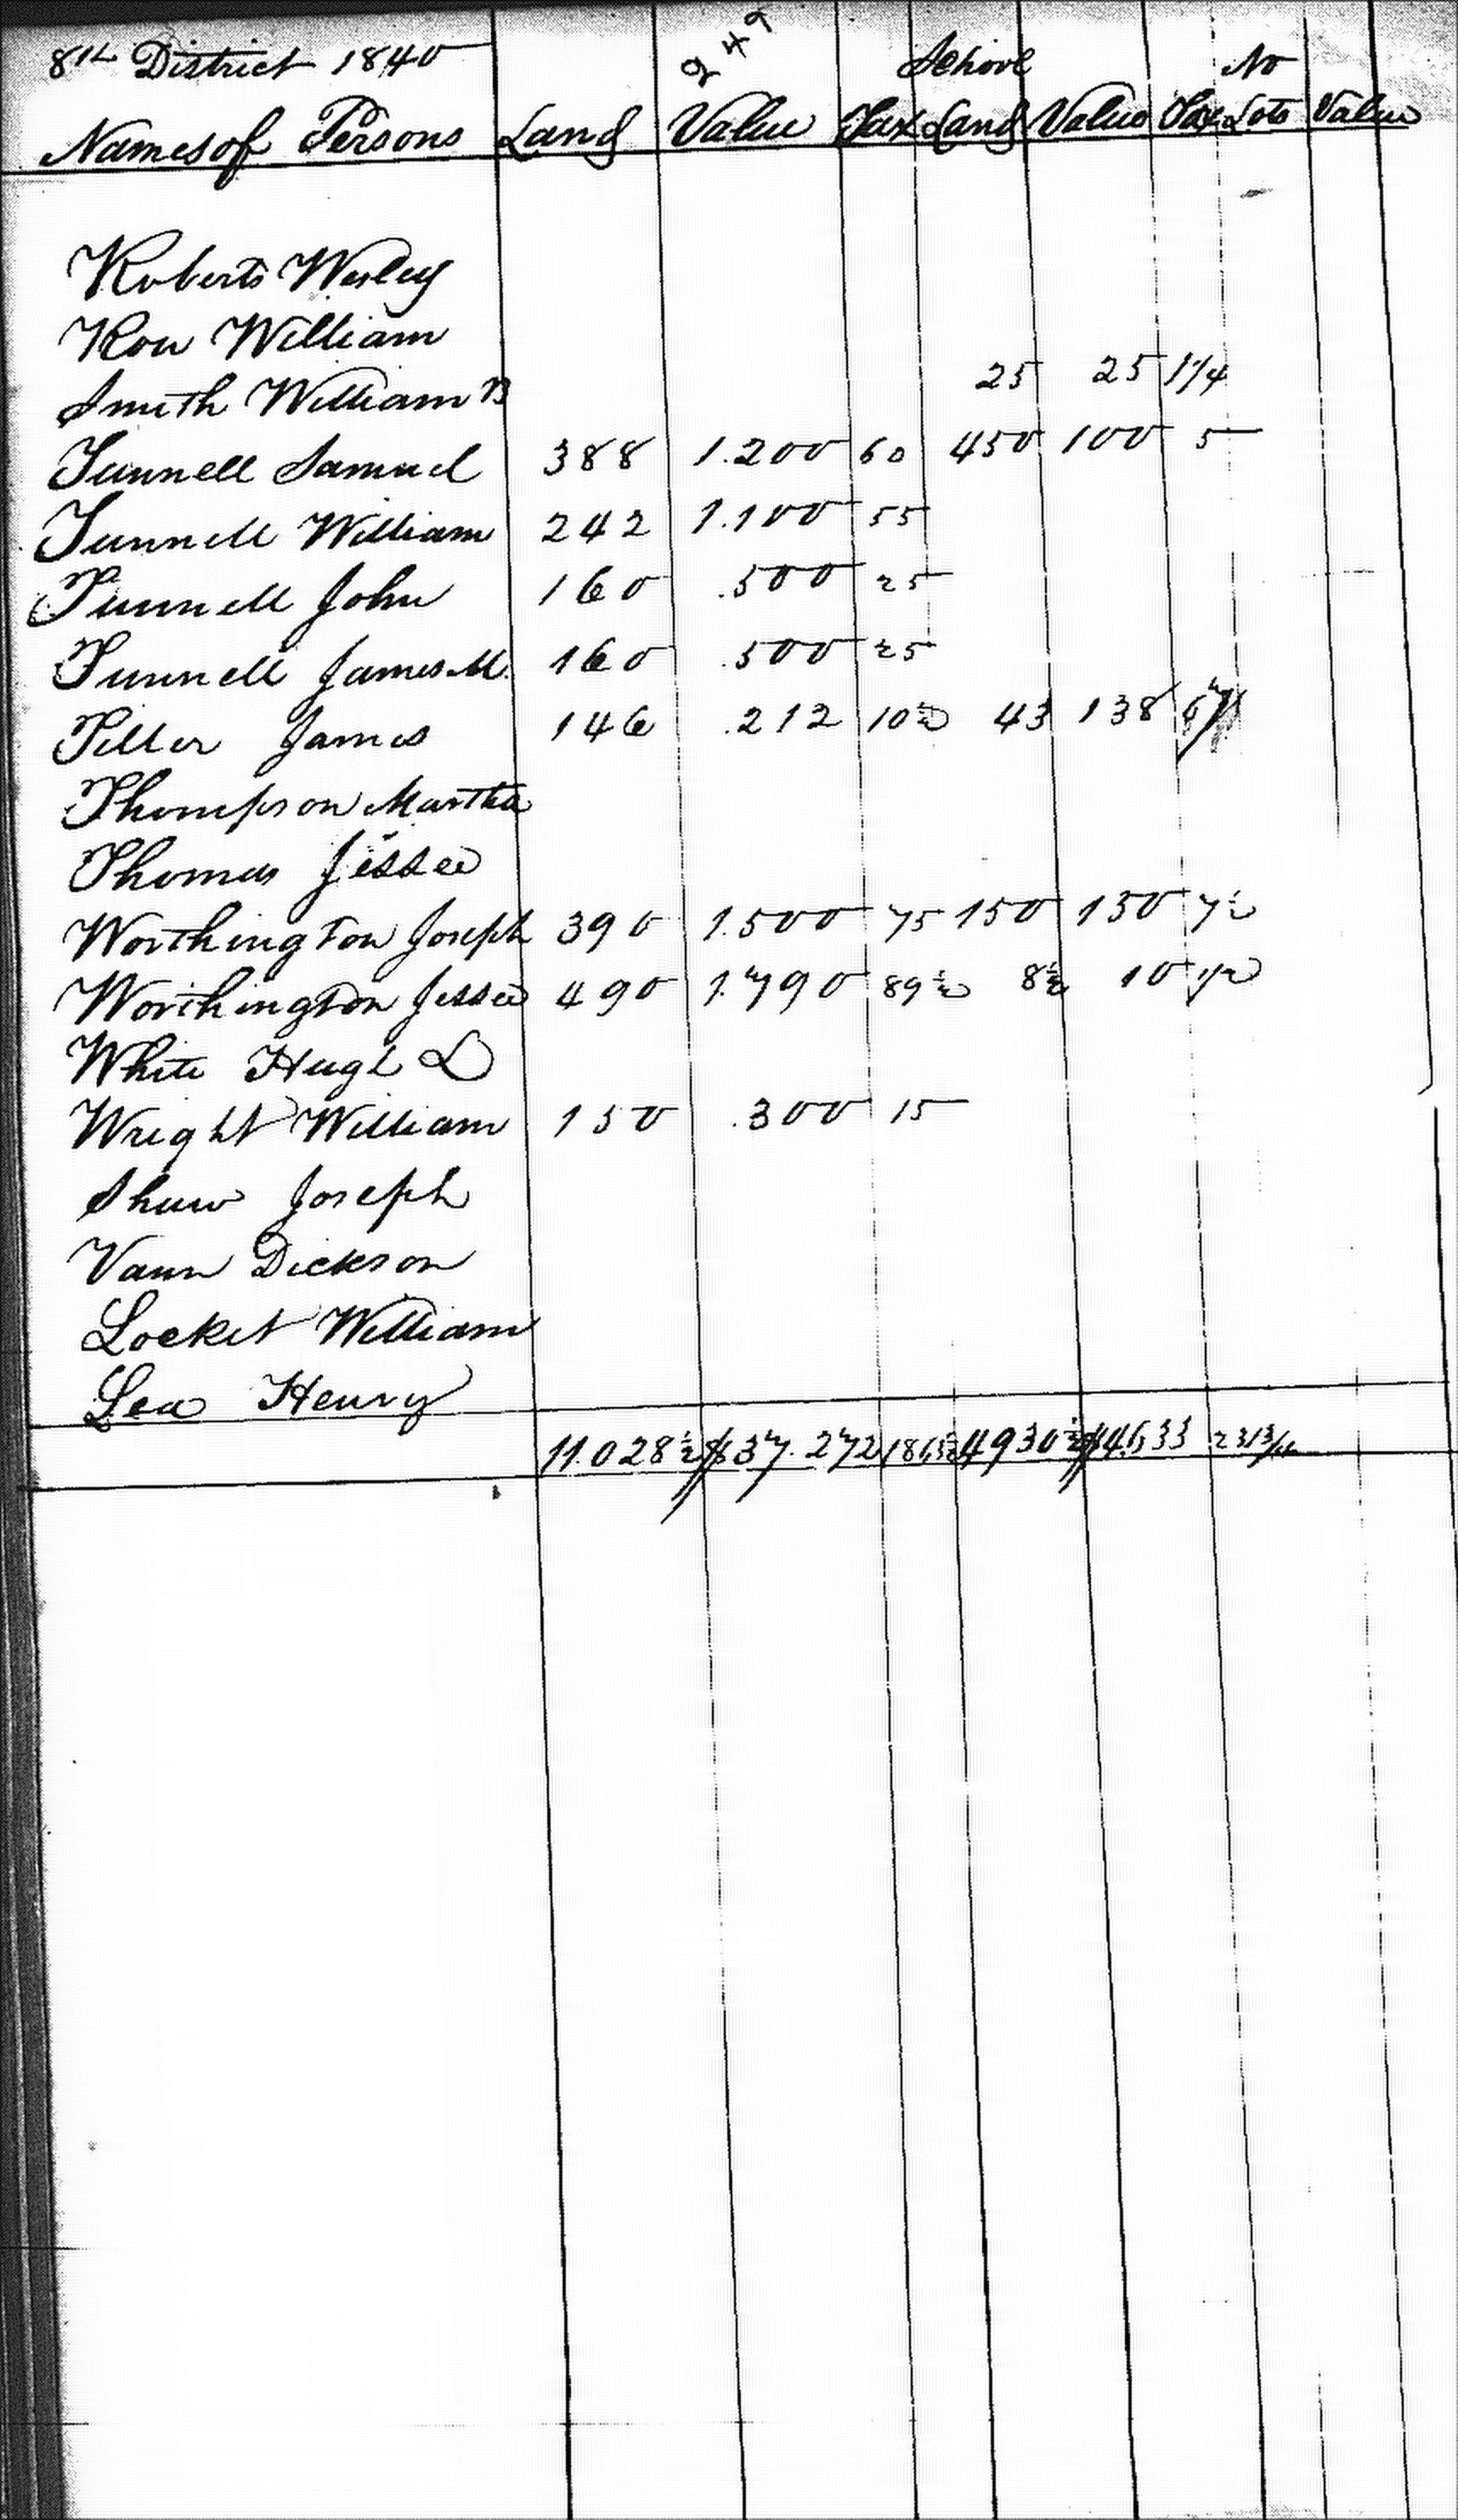 249
8th District 1840 School No
Names of Persons Land Value Tax Land Value Tax Lots Value
Roberts Wesley
Row William
Smith William B 25 25 1 1/4
Tunnell Samuel 388 1.200 60 450 100 5
Tunnell William 242 1.100 55
Tunnell John 160 .500 25
Tunnell James M. 160 .500 25
Teller James 146 .212 10½ 43 138
Thompson Martha
Thomas Jessee
Worthington Joseph 390 1.500 75 150 150 7½
Worthington Jessee 490 1.790 89½ 8½ 10 1/2
White Hugh L
Wright William 150 .300 15
Shaw Joseph
Vann Dickson
Locket William
Lea Henry
11.028½ $37.272 4930½ $4633